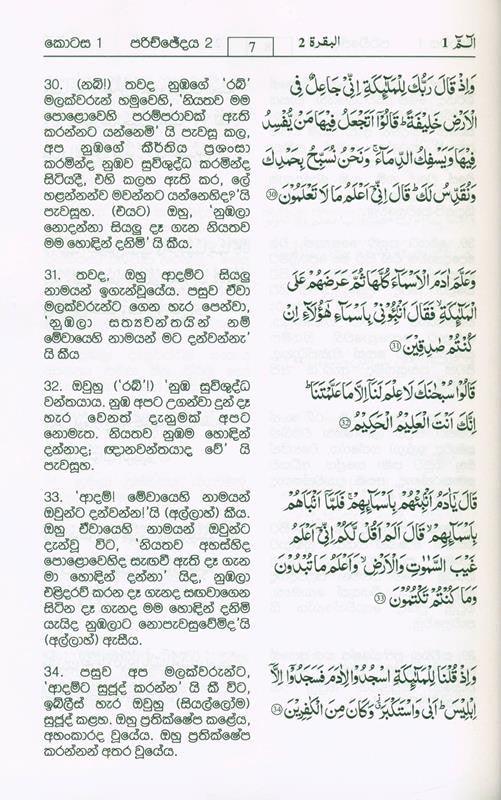 කොටස 1 පරිච්ඡේදය 2 7 البقرة 2 الٓمّٓ 1
30. (නබි!) තවද නුඹගේ 'රබ්'
මලක්වරුන් හමුවෙහි, 'නියතව මම
පොළොවෙහි පරම්පරාවක් ඇති
කරන්නට යන්නෙමි' යි පැවසූ කල,
අප නුඹගේ කීර්තිය ප්‍රශංසා
කරමින්ද නුඹව සුවිශුද්ධ කරමින්ද
සිටියදී, එහි කලහ ඇති කර, ලේ
හළන්නන්ව මවන්නට යන්නෙහිද?' යි
පැවසූහ. (එයට) ඔහු, 'නුඹලා
නොදන්නා සියලු දෑ ගැන නියතව
මම හොඳින් දනිමි' යි කීය.
وَاِذْ قَالَ رَبُّكَ لِلْمَلٰٓئِكَةِ اِنِّيْ جَاعِلٌ فِى
الْاَرْضِ خَلِيْفَةً ؕ قَالُوْٓا اَتَجْعَلُ فِيْهَا مَنْ يُّفْسِدُ
فِيْهَا وَيَسْفِكُ الدِّمَآءَ ۚ وَنَحْنُ نُسَبِّحُ بِحَمْدِكَ
وَنُقَدِّسُ لَكَ ؕ قَالَ اِنِّيْٓ اَعْلَمُ مَا لَا تَعْلَمُوْنَ ۝30
31. තවද, ඔහු ආදම්ට සියලු
නාමයන් ඉගැන්වූයේය. පසුව ඒවා
මලක්වරුන්ට ගෙන හැර පෙන්වා,
'නුඹලා සත්‍යවන්තයින් නම්
මේවායෙහි නාමයන් මට දන්වන්න.'
යි කීය
وَعَلَّمَ اٰدَمَ الْاَسْمَآءَ كُلَّهَا ثُمَّ عَرَضَهُمْ عَلَى
الْمَلٰٓئِكَةِ ۙ فَقَالَ اَنْۢبِـُٔوْنِيْ بِاَسْمَآءِ هٰٓؤُلَآءِ اِنْ
كُنْتُمْ صٰدِقِيْنَ ۝31
32. ඔවුහු ('රබ්'!) 'නුඹ සුවිශුද්ධ
වන්තයාය. නුඹ අපට උගන්වා දුන් දෑ
හැර වෙනත් දැනුමක් අපට
නොමැත. නියතව නුඹම හොඳින්
දන්නාද; ඥානවන්තයාද වේ' යි
පැවසූහ.
قَالُوْا سُبْحٰنَكَ لَا عِلْمَ لَنَآ اِلَّا مَا عَلَّمْتَنَا ؕ
اِنَّكَ اَنْتَ الْعَلِيْمُ الْحَكِيْمُ ۝32
33. 'ආදම්! මේවායෙහි නාමයන්
ඔවුන්ට දන්වන්න!'යි (අල්ලාහ්) කීය.
ඔහු ඒවායෙහි නාමයන් ඔවුන්ට
දැන්වූ විට, 'නියතව අහස්හිද
පොළොවෙහිද සැඟවී ඇති දෑ ගැන
මා හොඳින් දන්නා' යිද, නුඹලා
එළිදරව් කරන දෑ ගැනද සඟවාගෙන
සිටින දෑ ගැනද මම හොඳින් දනිමි
යැයිද නුඹලාට නොපැවසුවෙම්ද'යි
(අල්ලාහ්) ඇසීය.
قَالَ يٰٓاٰدَمُ اَنْۢبِئْهُمْ بِاَسْمَآئِهِمْ ۚ فَلَمَّآ اَنْۢبَاَهُمْ
بِاَسْمَآئِهِمْ ۙ قَالَ اَلَمْ اَقُلْ لَّكُمْ اِنِّيْٓ اَعْلَمُ
غَيْبَ السَّمٰوٰتِ وَالْاَرْضِ ۙ وَاَعْلَمُ مَا تُبْدُوْنَ
وَمَا كُنْتُمْ تَكْتُمُوْنَ ۝33
34. පසුව අප මලක්වරුන්ට,
'ආදම්ට සුජූද් කරන්න' යි කී විට,
ඉබ්ලීස් හැර ඔවුහු (සියල්ලෝම)
සුජූද් කළහ. ඔහු ප්‍රතික්ෂේප කළේය,
අහංකාරද වූයේය. ඔහු ප්‍රතික්ෂේප
කරන්නන් අතර වූයේය.
وَاِذْ قُلْنَا لِلْمَلٰٓئِكَةِ اسْجُدُوْا لِاٰدَمَ فَسَجَدُوْٓا اِلَّآ
اِبْلِيْسَ ؕ اَبٰى وَاسْتَكْبَرَ ۫ وَكَانَ مِنَ الْكٰفِرِيْنَ ۝34